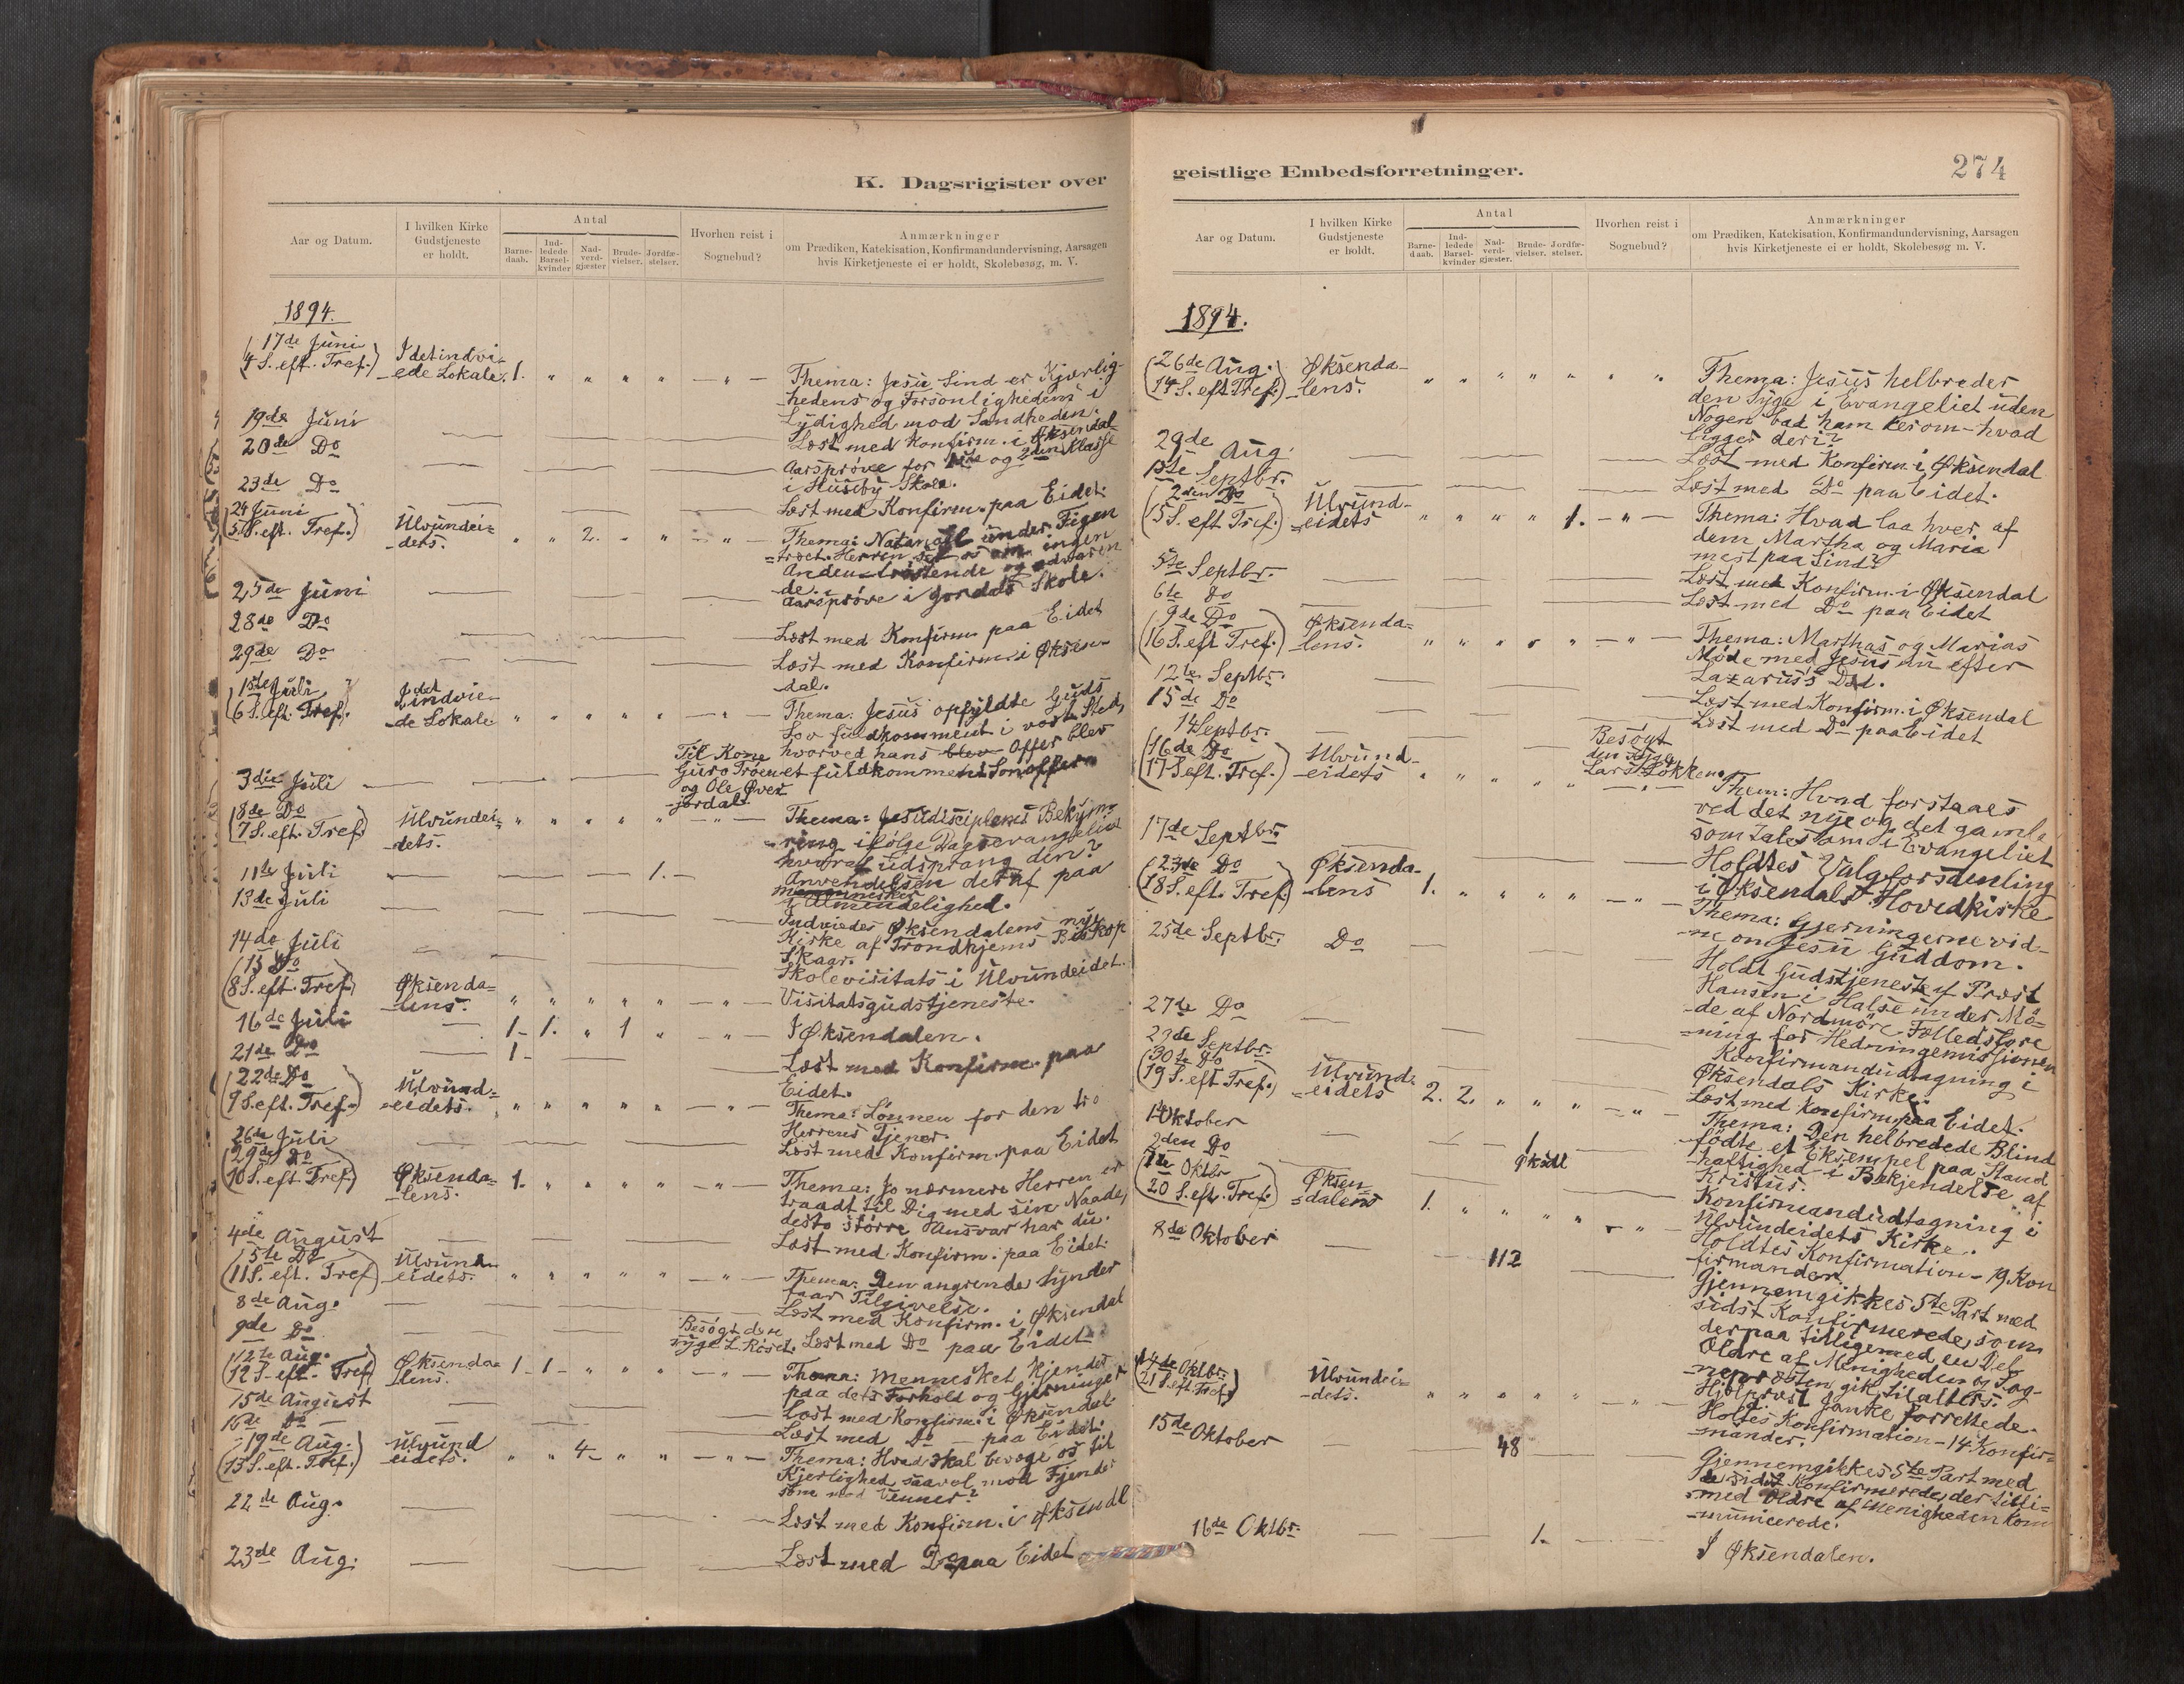 K. Dagsrigister over
Aar og Datum.
I hvilken Kirke
Gudstjeneste
er holdt.
Antal
Barne-
daab.
Ind-
ledede
Barsel-
kvinder
Nad-
verd-
gjæster.
Brude-
vielser.
Jordfæ-
stelser.
Hvorhen reist i
Sognebud?
Anmærkninger
om Prædiken, Katekisation, Konfirmandundervisning, Aarsagen
hvis Kirketjeneste ei er holdt, Skolebesøg, m. V.
1894.
17de Juni
(4 S. eft. Tref.)
I det indvi-
ede Lokale. 1. " " " " — " —
Thema: Jesu Sind er Kjærlig-
hedens og Forsonlighedens i
Lydighed mod Sandheden.
19de Juni
Læst med Konfirm. i Øksendal
20de Do
Aarsprøve for 1ste og 2den Klasse
i Husby Skole.
23de Do
Læst med Konfirm. paa Eidet.
24 Juni
(5 S. eft. Tref.)
Ulvundei-
dets. " " 2. " " — " —
Thema: Natanael under Figen
-træet. Herren ser os som ingen
Anden trøstende og advaren
de.
25de Juni
Aarsprøve i Jordals Skole.
28de Do
Læst med Konfirm. paa Eidet
29de Do
Læst med Konfirm. i Øksen-
dal.
1ste Juli
(6 S. eft. Tref.)
I det
indvie-
de Lokale " " " " " — " —
Thema: Jesus opfyldte Guds
Lov fuldkomment i vort Sted,
hvorved hans blev Offer blev
et fuldkomment Sonoffer
3die Juli
Til Kone
Guro Trøen
og Ole Øver
-jordal.
8de Do
(7 S. eft. Tref.)
Ulvundei-
dets. " " " " " — " —
Thema: Jesu disciplenes Bekym
-ring ifølge Dagsevangeliet
hvoraf udsprang den?
Anvendelsen deraf paa
mennesker
i Almindelighed.
11te Juli 1.
13de Juli
Indviedes Øksendalens nye
Kirke af Trondhjems Biskop
Skaar.
14de Juli
Skolevisitats i Ulvundeidet.
15 Do
(8 S. eft. Tref.)
Øksenda-
lens. " " " " " — " —
Visitatsgudstjeneste.
16de Juli 1 - 1. " 1 " "
I Øksendalen.
21de Do 1 -
Læst med Konfirm. paa
Eidet.
22de Do
(9 S. eft. Tref.)
Ulvund-
eidets. " " " " " — " —
Thema: Lønnen for den tro
Herrens Tjener.
26de Juli
Læst med Konfirm. paa Eidet
29de Do
(10 S. eft. Tref.)
Øksenda-
lens. 1. " " " " — " —
Thema: Jo nærmere Herren er
traadt til Dig med sin Naade,
desto større Ansvar har du.
4de August
Læst med Konfirm. paa Eidet.
5te Do
(11 S. eft. Tref.)
Ulvund-
eidets. " " " " " — " —
Thema: Den angrende Synder
faar Tilgivelse.
8de Aug.
Læst med Konfirm. i Øksendal
9de Do
Besøgt den
syge L. Røset. Læst med Do paa Eidet
12te Aug.
(12 S. eft. Tref.)
Øksenda-
lens. 1 - 1 - " " " — " —
Thema: Mennesket kjendes
paa dets Forhold og Gjerninger
15de August
Læst med Konfirm. i Øksendal
16de Do —
Læst med Do — paa Eidet.
19de Aug.
(13 S. eft. Tref.)
Ulvund
eidets. " " 4 - " " — " —
Thema: Hvad skal bevæge os til
Kjerlighed saavel mod Fjender
som mod Venner?
22de Aug.
Læst med Konfirm. i Øksendl
23de Aug.
Læst med Do paa Eidet
geistlige Embedsforretninger.
274
Aar og Datum.
I hvilken Kirke
Gudstjeneste
er holdt.
Antal
Barne-
daab.
Ind-
ledede
Barsel-
kvinder
Nad-
verd-
gjæster.
Brude-
vielser.
Jordfæ-
stelser.
Hvorhen reist i
Sognebud?
Anmærkninger
om Prædiken, Katekisation, Konfirmandundervisning, Aarsagen
hvis Kirketjeneste ei er holdt, Skolebesøg m. V.
1894.
26de Aug.
(14 S. eft Tref.)
Øksenda-
-lens. " " " " " " "
Thema: Jesus helbreder
den Syge i Evangeliet uden
Nogen bad ham derom - hvad
ligger deri?
29de Aug.
Læst med Konfirm i Øksendal
1ste Septbr.
Læst med Do paa Eidet.
2den Do
(15 S. eft Tref.)
Ulvund-
-eidets " " " " 1. — " —
Thema: Hvad laa hver af
dem Martha og Maria
mest paa Sind?
5te Septbr.
Læst med Konfirm. i Øksendal
6te Do
Læst med Do paa Eidet
9de Do
(16 S. eft Tref.)
Øksenda-
lens. " " " " " — " —
Thema: Marthas og Marias
Møde med Jesus efter
Lazarus's Død.
12te Septbr.
Læst med Konfirm. i Øksendal
15de Do
Læst med Do paa Eidet
14 Septbr.
Besøgt
den syge
Lars Løkken.
16de Do
(17 S. eft. Tref.)
Ulvund-
-eidets " " " " " — " —
Them: Hvad forstaaes
ved det nye og det gamle
som tales om i Evangeliet
17de Septbr.
Holdtes Valgforsamling
i Øksendals Hovedkirke
23de Do
(18 S. eft. Tref.)
Øksenda-
-lens 1. " " " " — " —
Thema: Gjerningerne vid-
-ne om Jesu Guddom.
25de Septbr. Do
Holdt Gudstjeneste af Præst
Hansen i Halse under Mø-
-de af Nordmøre Fælledsfore
-ning for Hedningemissionen
27de Do
Konfirmandudtagning i
Øksendals Kirke.
29de Septbr.
Læst med Konfirm. paa Eidet.
30te Do
(19 S. eft Tref.)
Ulvund-
-eidets 2. 2. " " " — " —
Thema: Den helbredede Blind
-fødte et Eksempel paa Stand
-haftighed i Bekjendelse af
Kristus.
1 Oktober 1
Øksdl
2den Do
Konfirmandudtagning i
Ulvundeidets Kirke.
Oktbr
(20 S. eft. Tref.)
Øksen-
-dalens 1. " " " " — " —
Holdtes Konfirmation - 19 Kon
firmander.
8de Oktober 112
Gjennemgikkes 5te Part med
sidst Konfirmerede, som
derpaa tilligemed en Del
Ældre af Menigheden og Sog-
nepresten gik til alters.
Hjlprest Janke forrettede.
14de Oktbr.
(21 S. eft. Tref.)
Ulvundei-
-dets. " " " " " — " —
Holtes Konfirmation - 14 Konfir-
mander.
15de Oktober 48
Gjennemgikkes 5te Part med
de sidst Konfirmerede, der tilli-
med Ældre af Menigheden kom
-municerede.
16de Oktbr. 1.
I Øksendalen.